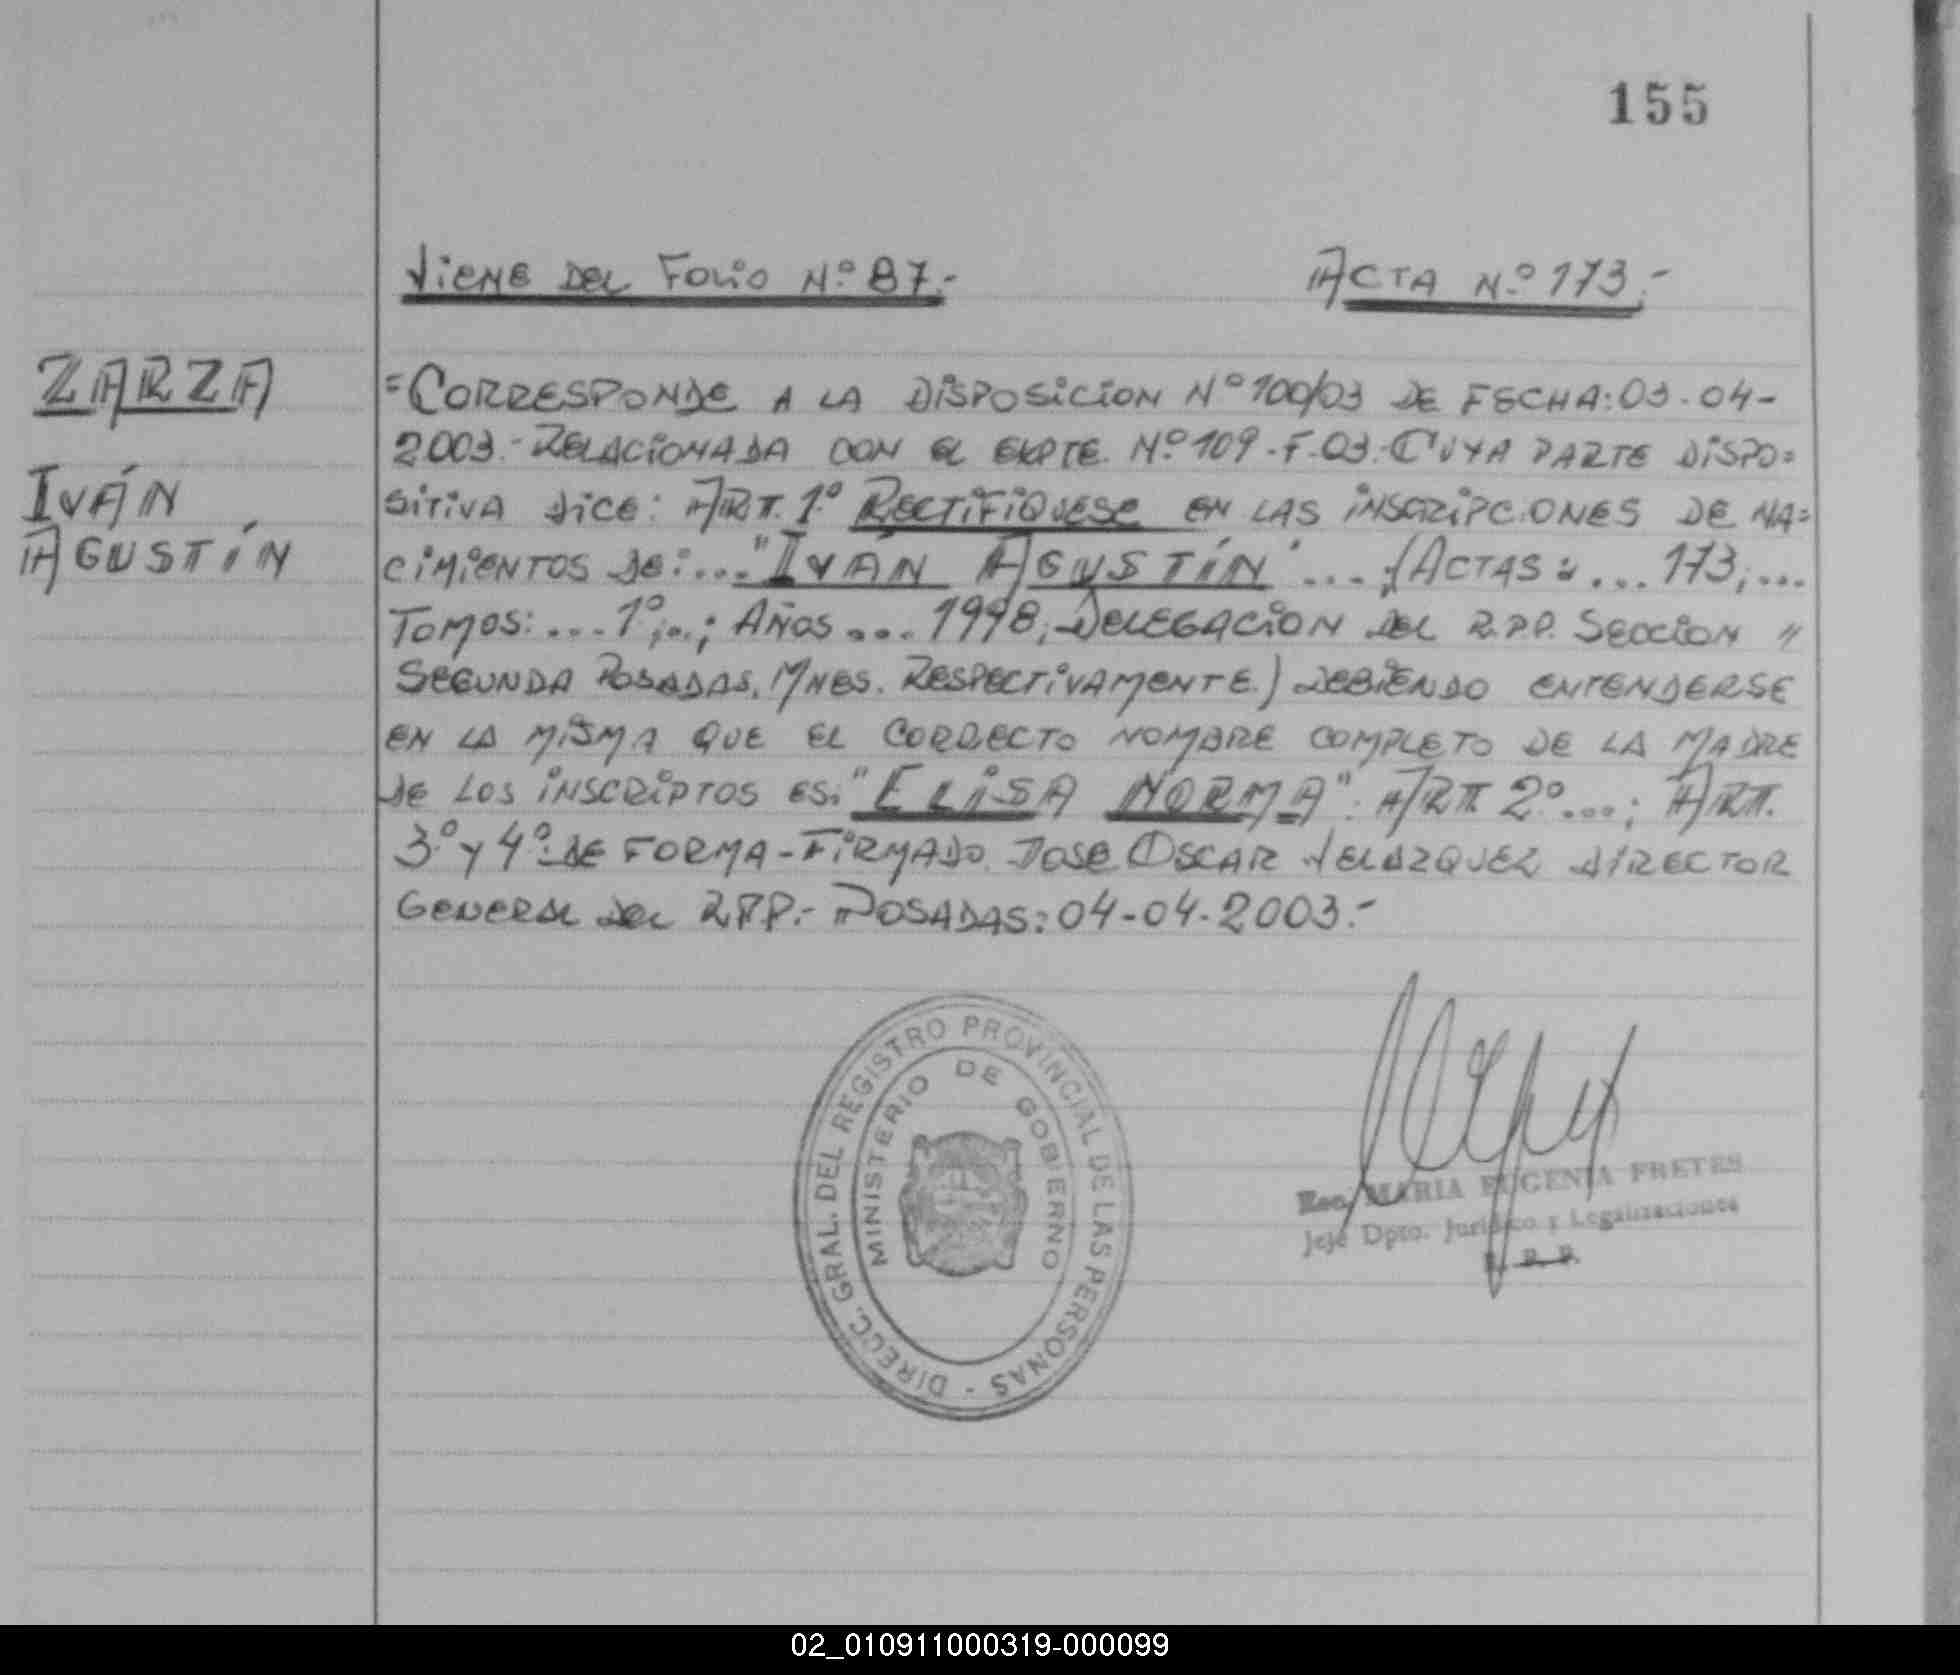 155
Viene del Folio Nº 87.-
Acta Nº 173.-
ZARZA
Iván
Agustín
=Corresponde a la Disposicion Nº 100/03 de fecha: 03-04-
2003.- Relacionada con el Expte. Nº 109-F-03.- Cuya parte dispo=
sitiva dice: Art. 1º Rectifiquese en las inscripciones de na=
cimientos de:... "Iván Agustín" ... ;(Actas: ... 173; ...
Tomos: ... 1º; ..; Años ... 1998; Delegacion del R.P.P. Seccion "
Segunda Posadas, Mnes. Respectivamente.) debiendo entenderse
en la misma que el correcto nombre completo de la madre
de los inscriptos es: "Elisa Norma". Art. 2º ...; Art.
3º y 4º de forma - Firmado. Jose Oscar Velazquez Director
General del R.P.P.- Posadas: 04-04-2003.-
DIRECC. GRAL. DEL REGISTRO PROVINCIAL DE LAS PERSONAS -
MINISTERIO DE GOBIERNO
Esc. MARIA EUGENIA FRETES
Jefe Dpto. Jurídico y Legalizaciones
R. P. P.
02_010911000319-000099